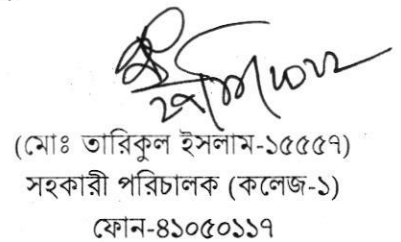 (মোঃ তারিকুল ইসলাম-১৫৫৫৭)
সহকারী পরিচালক (কলেজ-১)
ফোন-৪১০৫০১১৭